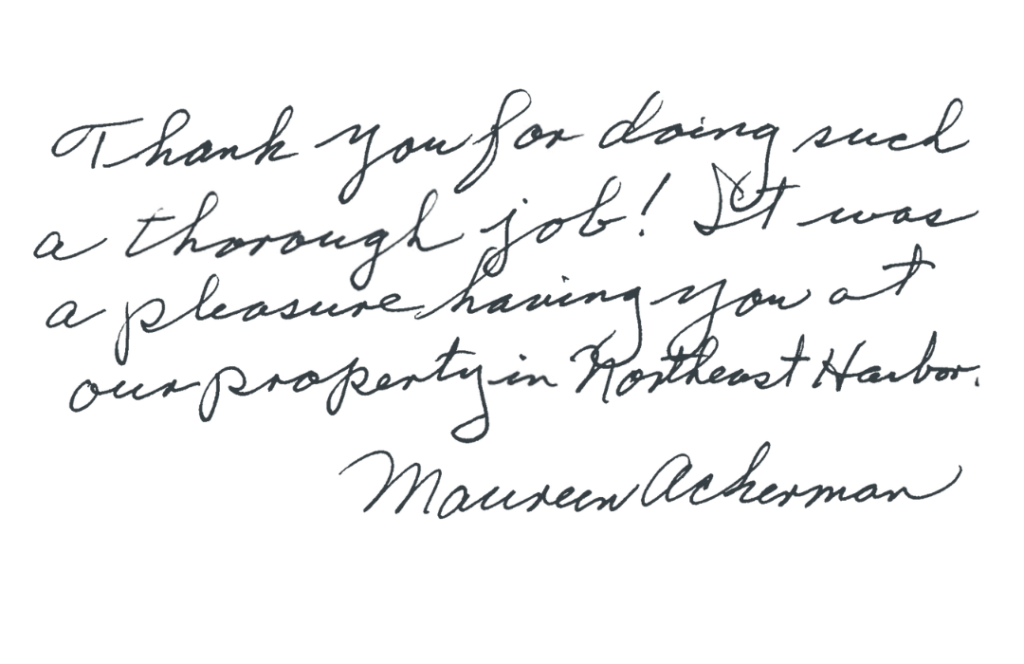 Thank you for doing such
a thorough job! It was
a pleasure having you at
our property in Northeast Harbor.
Maureen Ackerman